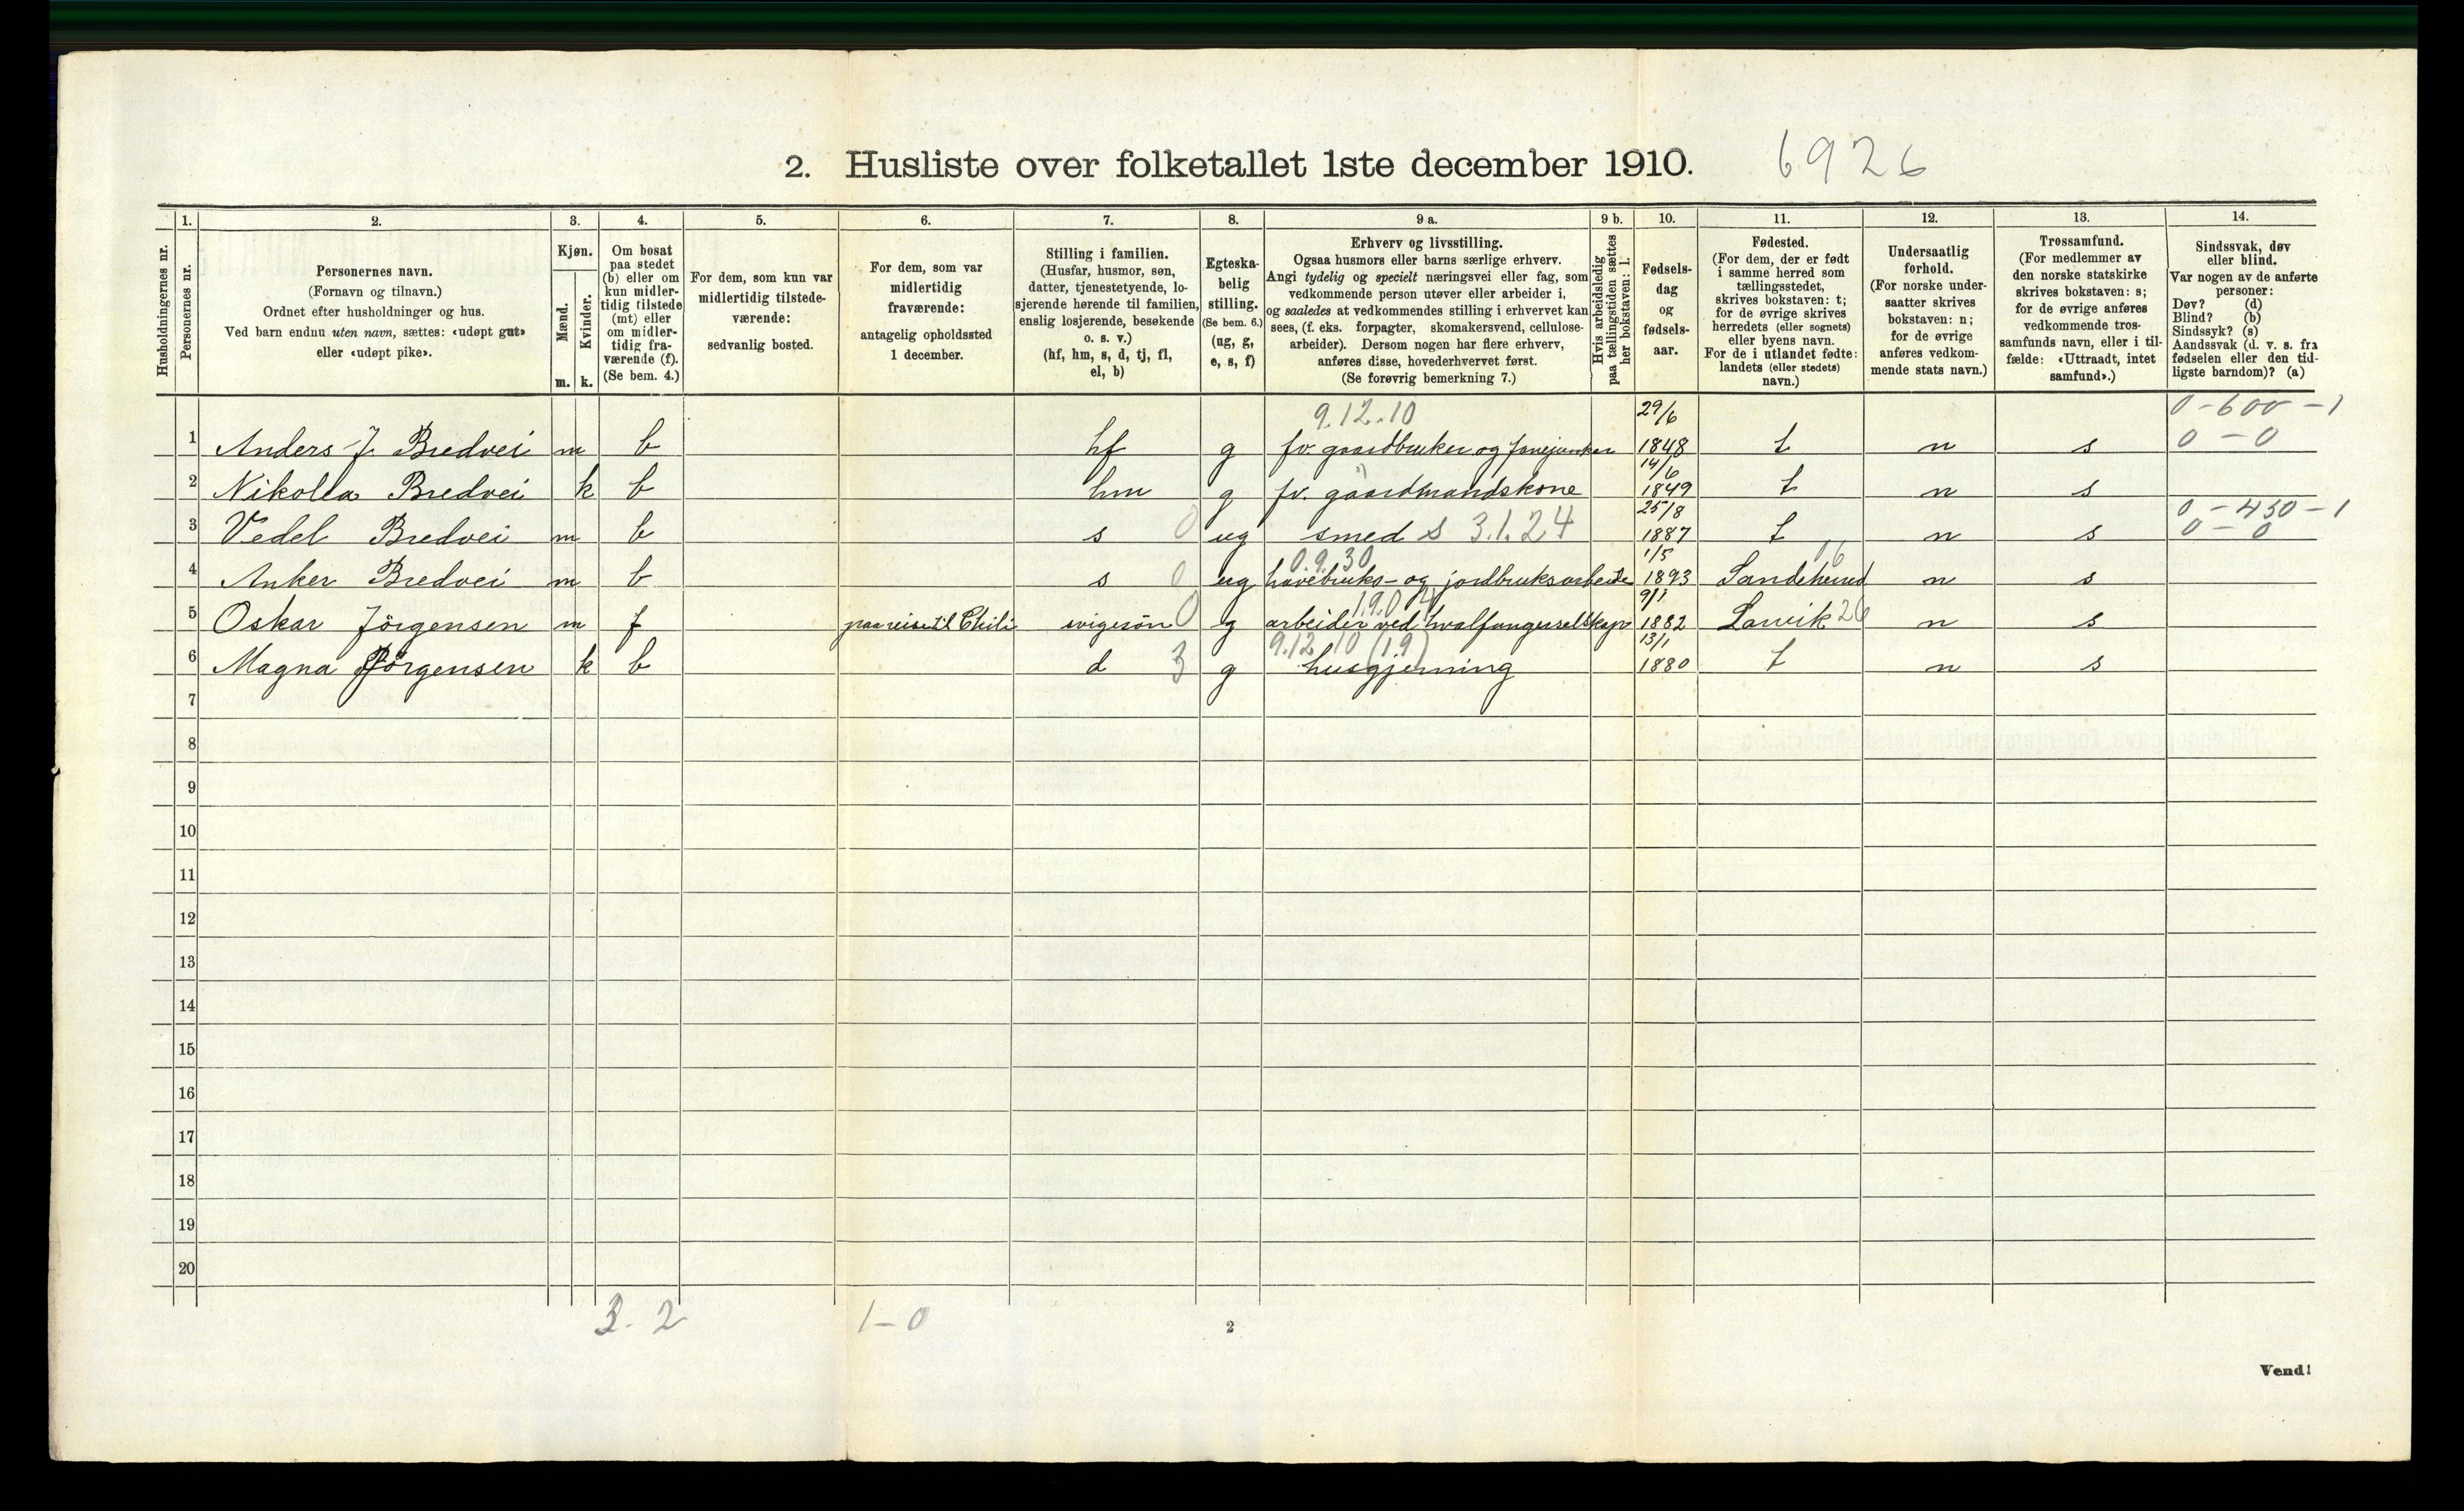 2. Husliste over folketallet 1ste december 1910. 6926
Husholdningernes nr.
1. Personernes nr.
2. Personernes navn.
(Fornavn og tilnavn.)
Ordnet efter husholdninger og hus.
Ved barn endnu uten navn, sættes: «udøpt gut»
eller «udøpt pike».
3. Kjøn.
Mænd. m.
Kvinder. k.
4. Om bosat
paa stedet
(b) eller om
kun midler-
tidig tilstede
(mt) eller
om midler-
tidig fra-
værende (f).
(Se bem. 4.)
5. For dem, som kun var
midlertidig tilstede-
værende:
sedvanlig bosted.
6. For dem, som var
midlertidig
fraværende:
antagelig opholdssted
1 december.
7. Stilling i familien.
(Husfar, husmor, søn,
datter, tjenestetyende, lo-
sjerende hørende til familien,
enslig losjerende, besøkende
o. s. v.)
(hf, hm, s, d, tj, fl,
el, b)
8. Egteska-
belig
stilling.
(Se bem. 6.)
(ug, g,
e, s, f)
9 a. Erhverv og livsstilling.
Ogsaa husmors eller barns særlige erhverv.
Angi tydelig og specielt næringsvei eller fag, som
vedkommende person utøver eller arbeider i,
og saaledes at vedkommendes stilling i erhvervet kan
sees, (f. eks. forpagter, skomakersvend, cellulose-
arbeider). Dersom nogen har flere erhverv,
anføres disse, hovederhvervet først.
(Se forøvrig bemerkning 7.)
9 b. Hvis arbeidsledig
paa tællingstiden sættes
her bokstaven: l.
10. Fødsels-
dag
og
fødsels-
aar.
11. Fødested.
(For dem, der er født
i samme herred som
tællingsstedet,
skrives bokstaven: t;
for de øvrige skrives
herredets (eller sognets)
eller byens navn.
For de i utlandet fødte:
landets (eller stedets)
navn.)
12. Undersaatlig
forhold.
(For norske under-
saatter skrives
bokstaven: n;
for de øvrige
anføres vedkom-
mende stats navn.)
13. Trossamfund.
(For medlemmer av
den norske statskirke
skrives bokstaven: s;
for de øvrige anføres
vedkommende tros-
samfunds navn, eller i til-
fælde: «Uttraadt, intet
samfund».)
14. Sindssvak, døv
eller blind.
Var nogen av de anførte
personer:
Døv? (d)
Blind? (b)
Sindssyk? (s)
Aandssvak (d. v. s. fra
fødselen eller den tid-
ligste barndom)? (a)
9.12.10 29/6 0-600-1
1 Anders J. Bredvei m b hf g fv. gaardbruker og fanejunker 1848 t n s 0-0
14/6
2 Nikolla Bredvei k b hm g fv. gaardmandskone 1849 t n s
25/8 0-450-1
3 Vedel Bredvei m b s 0 ug smed s 3.1.24 1887 t n s 0-0
0.9.30 1/5 16
4 Anker Bredvei m b s 0 ug havebruks- og jordbruksarbeide 1893 Sandeherred n s
1.9.0 9/1
5 Oskar Jörgensen m f paa reise til Chili svigersön 0 g arbeider ved hvalfangerselskap 1882 Larvik 26 n s
9.12.10 (19) 13/1
6 Magna Jörgensen k b d 3 g husgjerning 1880 t n s
7
8
9
10
11
12
13
14
15
16
17
18
19
20
3-2 1-0
2
Vend!